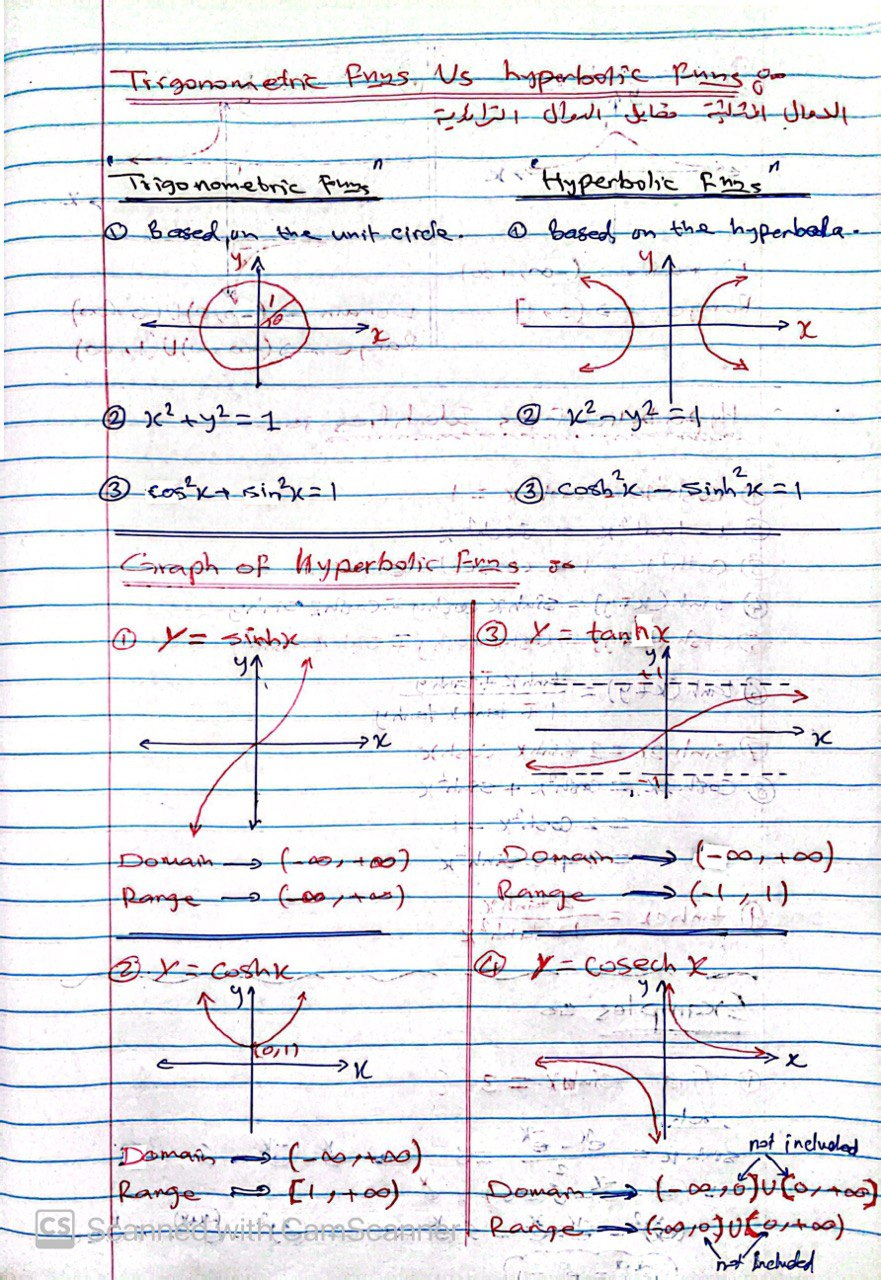 Trigonometric Fnns. Us hyperbolic Funs
الدوال المثلثية مقابل الدوال الزائدية
"Trigonometric Funs"
① Based on the unit circle.
y
1
θ
x
② x² + y² = 1
③ cos²x + sin²x = 1
"Hyperbolic Fnns"
① Based on the hyperbola.
y
x
② x² - y² = 1
③ cosh²x - sinh²x = 1
Graph of Hyperbolic Fnns
① Y = sinhx
y
x
Domain → (-∞, +∞)
Range → (-∞, +∞)
② Y = coshx
y
(0,1)
x
Domain ⇒ (-∞, +∞)
Range ⇒ [1, +∞)
③ Y = tanhx
y
+1
x
-1
Domain → (-∞, +∞)
Range → (-1, 1)
④ Y = cosech x
y
x
not included
Domain → (-∞, 0)∪(0, +∞)
Range → (-∞, 0)∪(0, +∞)
not included
CS Scanned with CamScanner